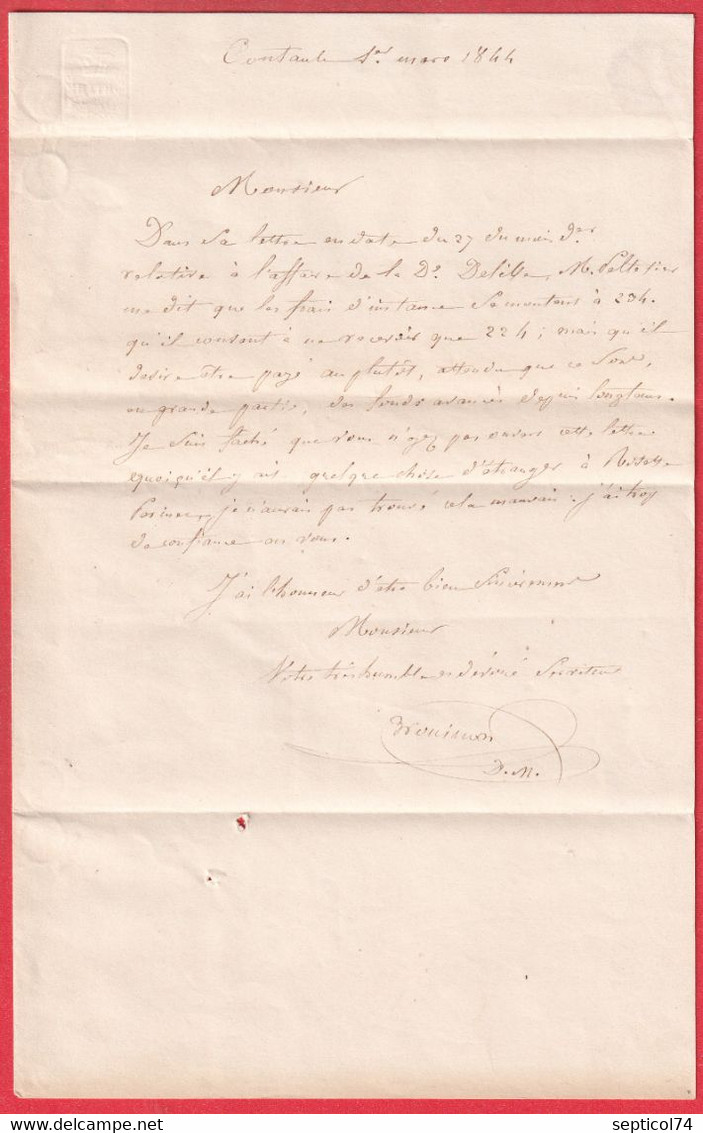 1er mars 1844
Monsieur
Dans sa lettre en date du 27 du mois der
relative à l'affaire de la De Delisle, M. Peltetier
me dit que les frais d'instance se montent à 234.
qu'il consent à ne recevoir que 224; mais qu'il
desire être payé au plutôt, attendu que ce sont,
en grande partie, des fonds avancés depuis longtems.
Je suis faché que vous n'ayez pas ouvert cette lettre
quoiqu'il y ait quelque chose d'étranger à
je n'aurais pas trouvé cela mauvais: j'ai trop
de confiance en vous.
J'ai l'honneur d'être bien sincèrement
Monsieur
Votre très humble et dévoué Serviteur
D. M.
septicol74